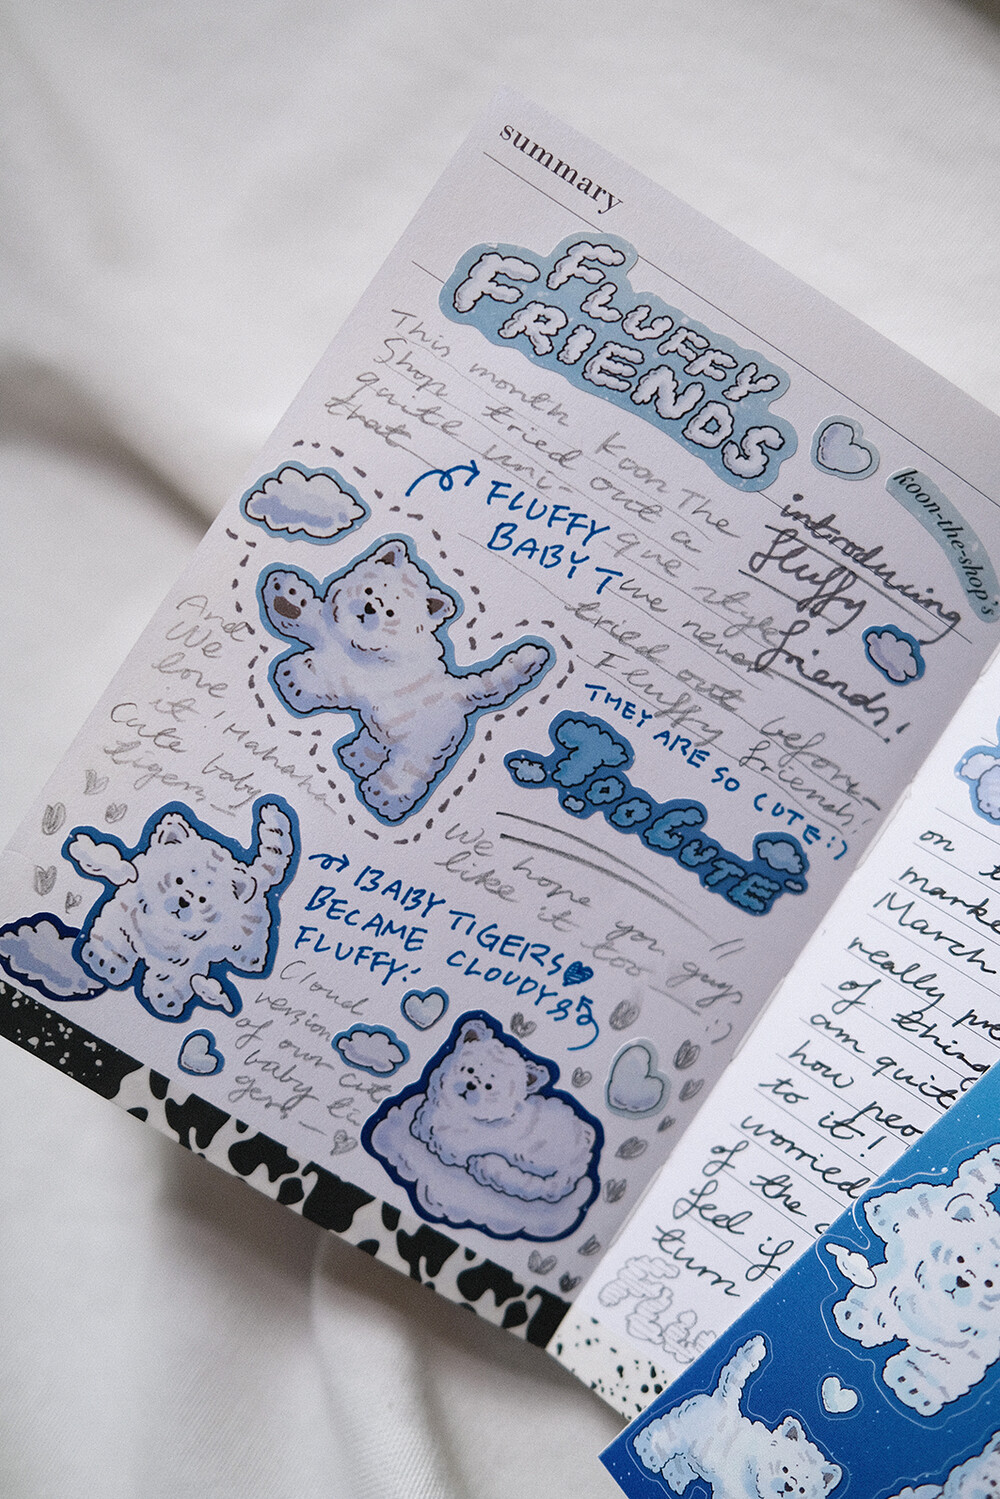 summary
FLUFFY
FRIENDS
koon-the-shop's
introducing
fluffy
friends!
This month Koon The
Shop tried out a
quite uni-que style
that we never
tried out before-
Fluffy friends!
FLUFFY
BABY T
THEY ARE SO CUTE:)
Too CUTE
We hope you guys
like it too :)
And
We
love
it! Hahaha
Cute baby
tigers
BABY TIGERS
BECAME CLOUDY &
FLUFFY!
Cloud
version
of our cute
baby ti-
gers
on t
marke
March
really pre
of thing
am quit
how peo
to it!
worried
of the
fed if
turn